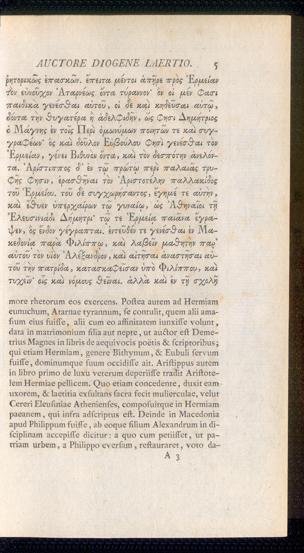 AUCTORE DIOGENE LAERTIO. 5
ῥητορικῶς ἐπασκῶν. ἔπειτα μέντοι ἀπῆρε πρὸς Ἑρμείαν
τὸν εὐνοῦχον Ἀταρνέως ὄντα τύραννον· ὃν οἱ μέν φασι
παιδικὰ γενέσθαι αὐτοῦ, οἱ δὲ καὶ κηδεῦσαι αὐτῷ,
δόντα τὴν θυγατέρα ἢ ἀδελφιδῆν, ὥς φησι Δημήτριος
ὁ Μάγνης ἐν τοῖς Περὶ ὁμωνύμων ποιητῶν τε καὶ συγ-
γραφέων· ὃς καὶ δοῦλον Εὐβούλου φησὶ γενέσθαι τὸν
Ἑρμείαν, γένει Βιθυνὸν ὄντα, καὶ τὸν δεσπότην ἀνελόν-
τα. Ἀρίστιππος δ' ἐν τῷ πρώτῳ περὶ παλαιᾶς τρυ-
φῆς φησιν, ἐρασθῆναι τὸν Ἀριστοτέλην παλλακίδος
τοῦ Ἑρμείου. τοῦ δὲ συγχωρήσαντος, ἔγημέ τε αὐτὴν,
καὶ ἔθυεν ὑπερχαίρων τῷ γυναίῳ, ὡς Ἀθηναῖοι τῇ
Ἐλευσινίᾳ Δήμητρι· τῷ τε Ἑρμείᾳ παιᾶνα ἔγρα-
ψεν, ὃς ἔνδον γέγραπται. ἐντεῦθέν τε γενέσθαι ἐν Μα-
κεδονίᾳ παρὰ Φιλίππῳ, καὶ λαβεῖν μαθητὴν παρ'
αὐτοῦ τὸν υἱὸν Ἀλέξανδρον, καὶ αἰτῆσαι ἀναστῆσαι αὐ-
τοῦ τὴν πατρίδα, κατασκαφεῖσαν ὑπὸ Φιλίππου, καὶ
τυχεῖν· οἷς καὶ νόμους θεῖναι. ἀλλὰ καὶ ἐν τῇ σχολῇ
more rhetorum eos exercens. Postea autem ad Hermiam
eunuchum, Atarnae tyrannum, se contulit, quem alii ama-
sium eius fuisse, alii cum eo affinitatem iunxisse volunt,
data in matrimonium filia aut nepte, ut auctor est Deme-
trius Magnes in libris de aequivocis poëtis & scriptoribus;
qui etiam Hermiam, genere Bithynum, & Eubuli servum
fuisse, dominumque suum occidisse ait. Aristippus autem
in libro primo de luxu veterum deperiisse tradit Aristote-
lem Hermiae pellicem. Quo etiam concedente, duxit eam
uxorem, & laetitia exsultans sacra fecit mulierculae, velut
Cereri Eleusiniae Athenienses, composuitque in Hermiam
paeanem, qui infra adscriptus est. Deinde in Macedonia
apud Philippum fuisse, ab eoque filium Alexandrum in di-
sciplinam accepisse dicitur: a quo cum petiisset, ut pa-
triam urbem, a Philippo eversam, restauraret, voto da-
A 3